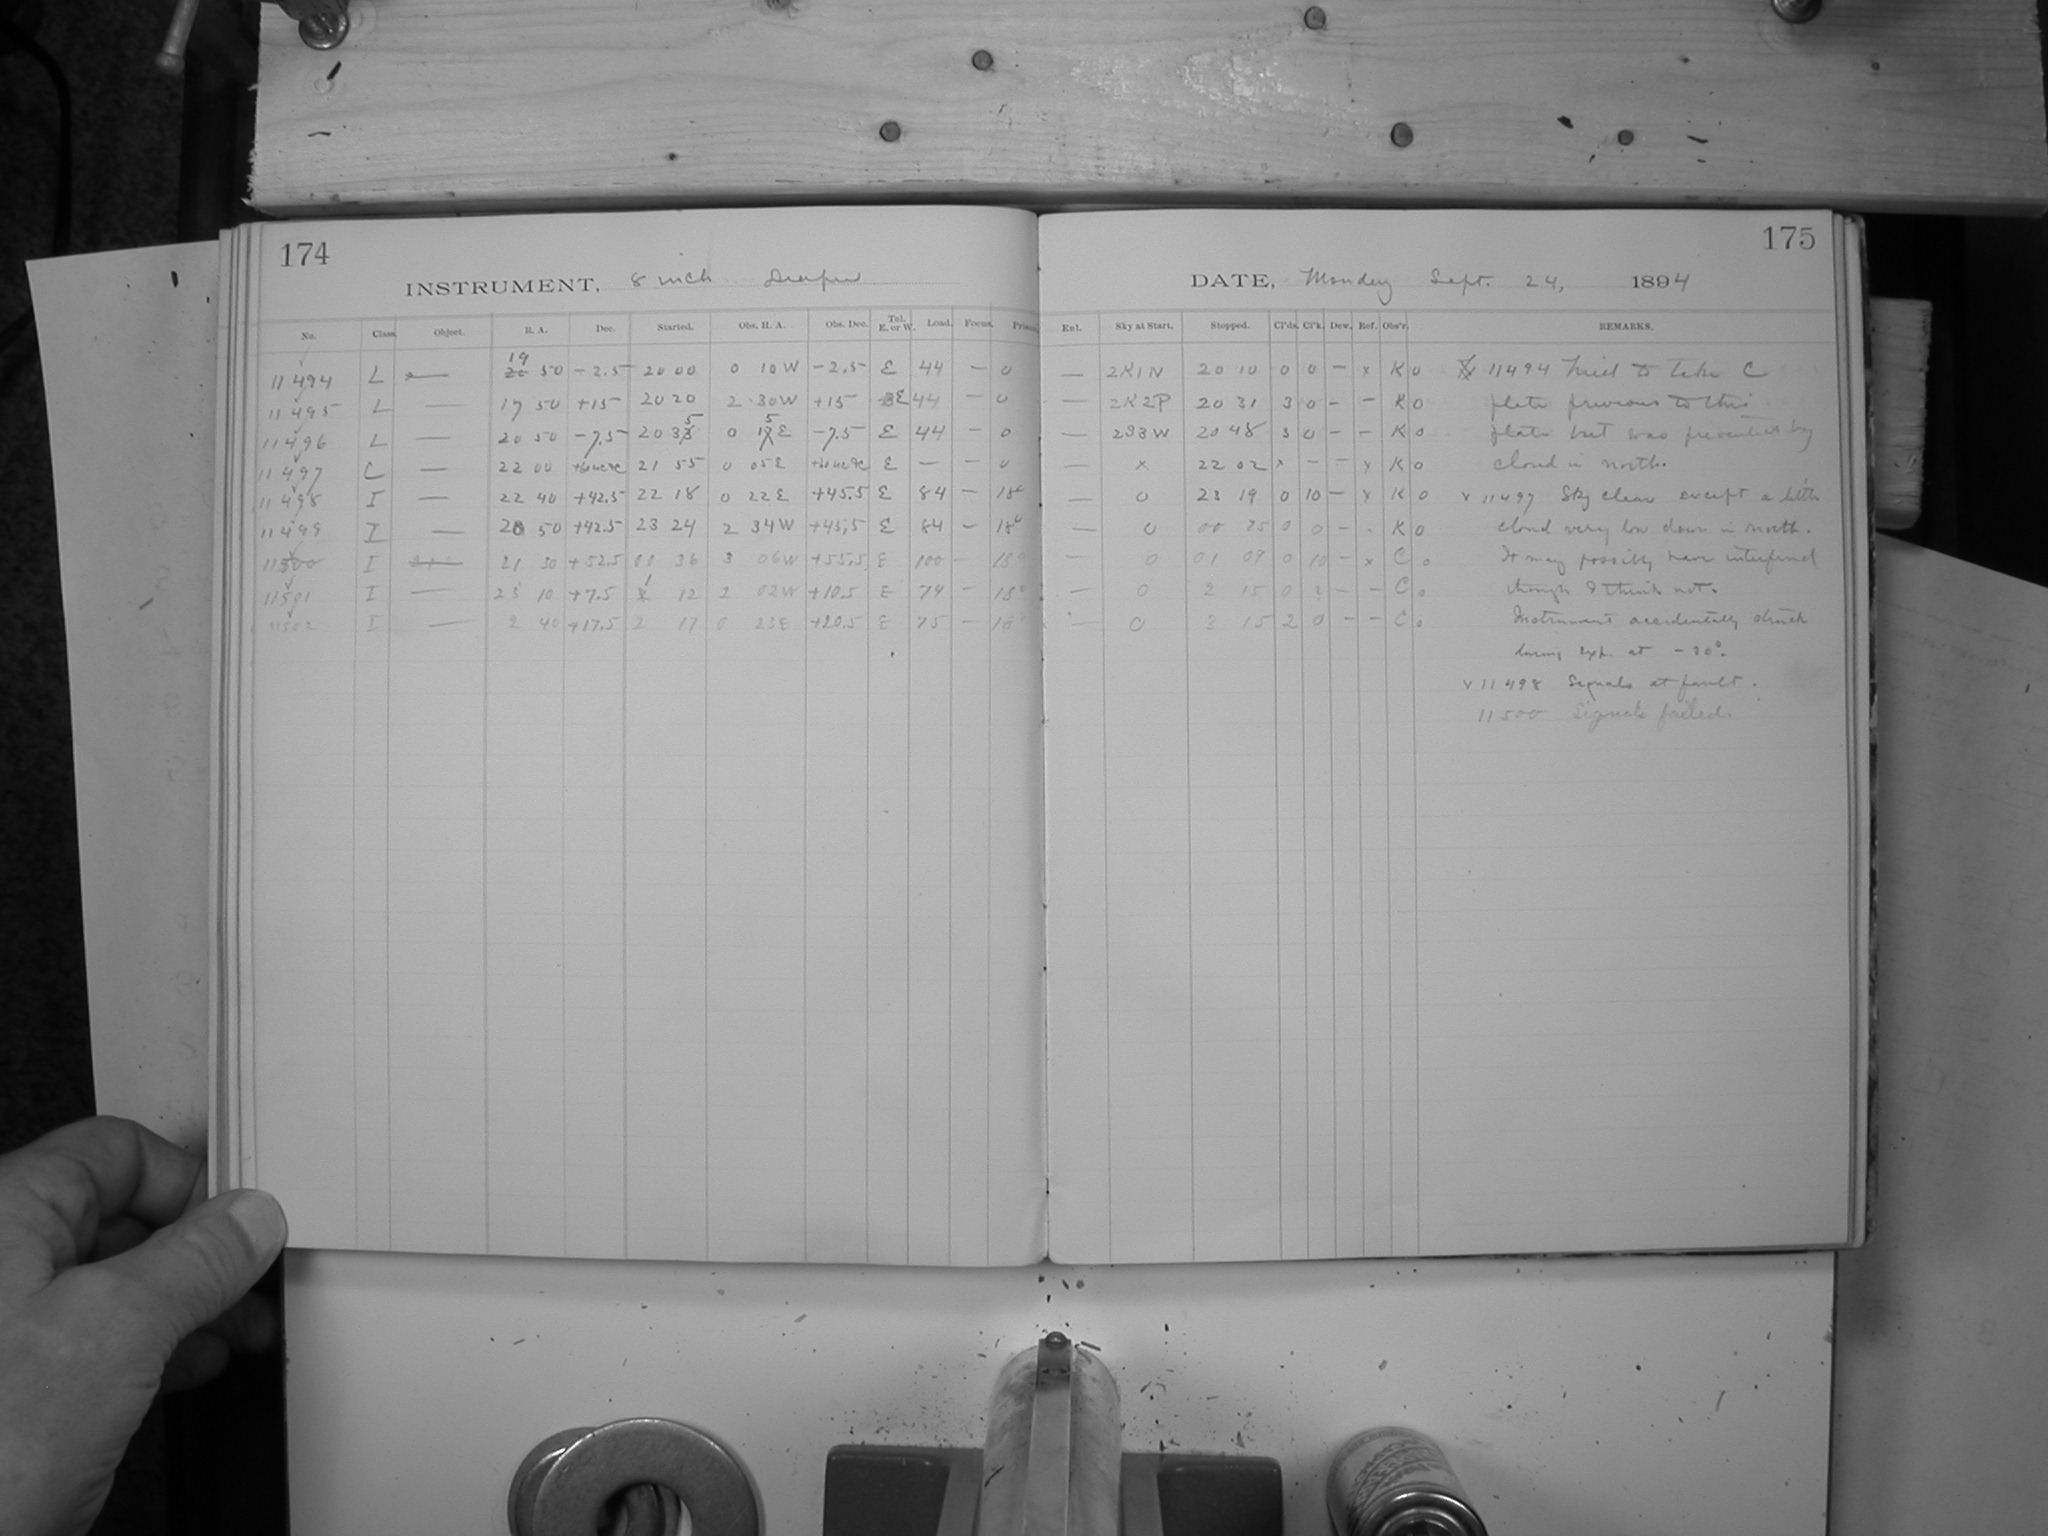 174
INSTRUMENT, 8 inch Draper
No. Class. Object. R. A. Dec. Started. Obs. H. A. Obs. Dec. Tel. E. or W. Load. Focus. Prism.
11494 L — 19 50 -2.5 20 00 0 10 W -2.5 E 44 — 0
11495 L — 17 50 +15 20 20 2 30 W +15 E 44 — 0
11496 L — 20 50 -7.5 20 35 0 15 E -7.5 E 44 — 0
11497 C — 22 00 21 55 0 05 E E — — 0
11498 I — 22 40 +42.5 22 18 0 22 E +45.5 E 84 — 18°
11499 I — 20 50 +42.5 23 24 2 34 W +45.5 E 84 — 18°
11500 I 21 30 +52.5 00 36 3 06 W +55.5 E 100 — 18°
11501 I — 23 10 +7.5 1 12 2 02 W +10.5 E 74 — 18°
11502 I — 2 40 +17.5 2 17 0 23 E +20.5 E 75 — 18°
175
DATE, Monday Sept. 24, 1894
Enl. Sky at Start. Stopped. Cl'ds. Cl'k. Dew. Ref. Obs'r. REMARKS.
— 2K1N 20 10 0 0 — x K 0 11494 Tried to take C
— 2K2P 20 31 3 0 — — K 0 plate previous to this
— 20 48 3 0 — — K 0 plate but was prevented by
— x 22 02 x — — x K 0 cloud in north.
— 0 23 19 0 10 — x K 0 v 11497 Sky clear except a little
— 0 00 25 0 0 — - K 0 cloud very low down in north.
— 0 01 09 0 10 — x C 0 It may possibly have interfered
— 0 2 15 0 — — C 0 though I think not.
— 0 3 15 2 0 — — C 0 Instrument accidentally struck
during exp. at
v 11498 Signals at fault.
11500 Signals failed.